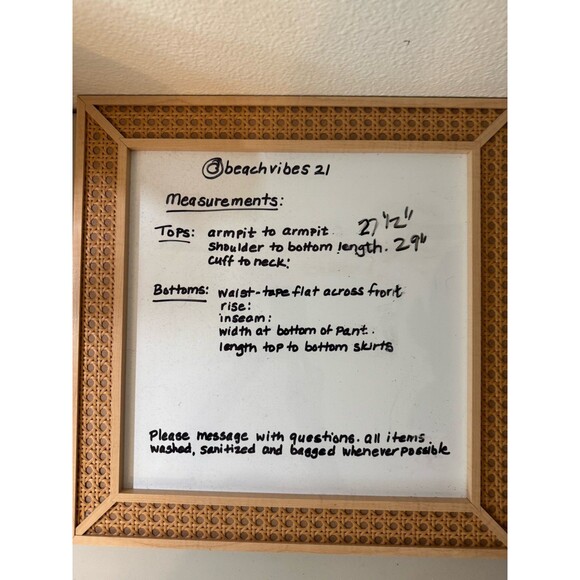 @beachvibes21
Measurements:
Tops: armpit to armpit. 27 1/2"
shoulder to bottom length. 29"
cuff to neck:
Bottoms: waist-tape flat across front
rise:
inseam:
width at bottom of pant.
length top to bottom skirts
Please message with questions. all items
washed, sanitized and bagged whenever possible